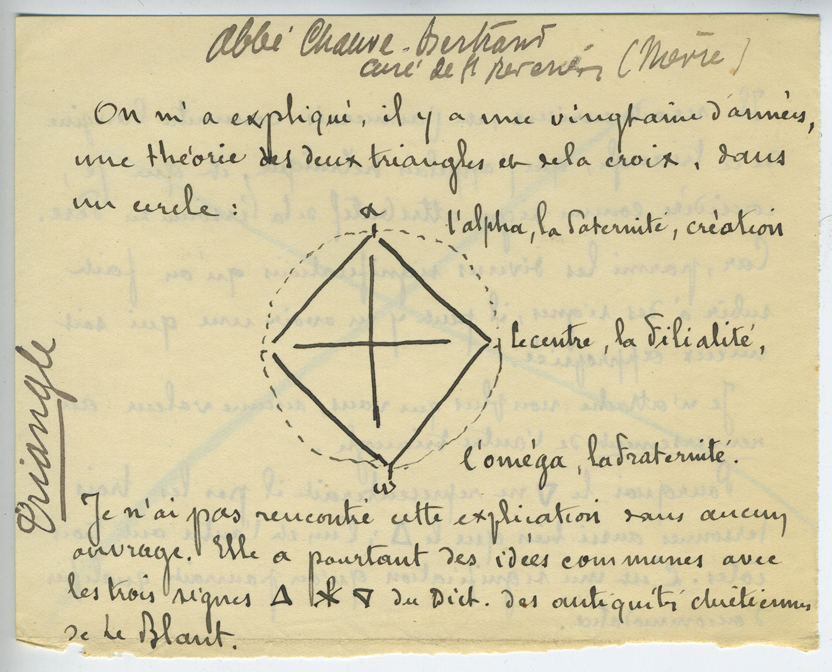 Abbé Chauve-Bertrand
curé de St Reverien (Nièvre)
On m'a expliqué, il y a une vingtaine d'années,
une théorie des deux triangles et de la croix, dans
un cercle :
α
l'alpha, la Paternité, création
le centre, la Filialité,
l'oméga, la Fraternité.
ω
Triangle
Je n'ai pas rencontré cette explication dans aucun
ouvrage. Elle a pourtant des idées communes avec
les trois signes Δ ∇ du Dict. des antiquités chrétiennes
de Le Blant.